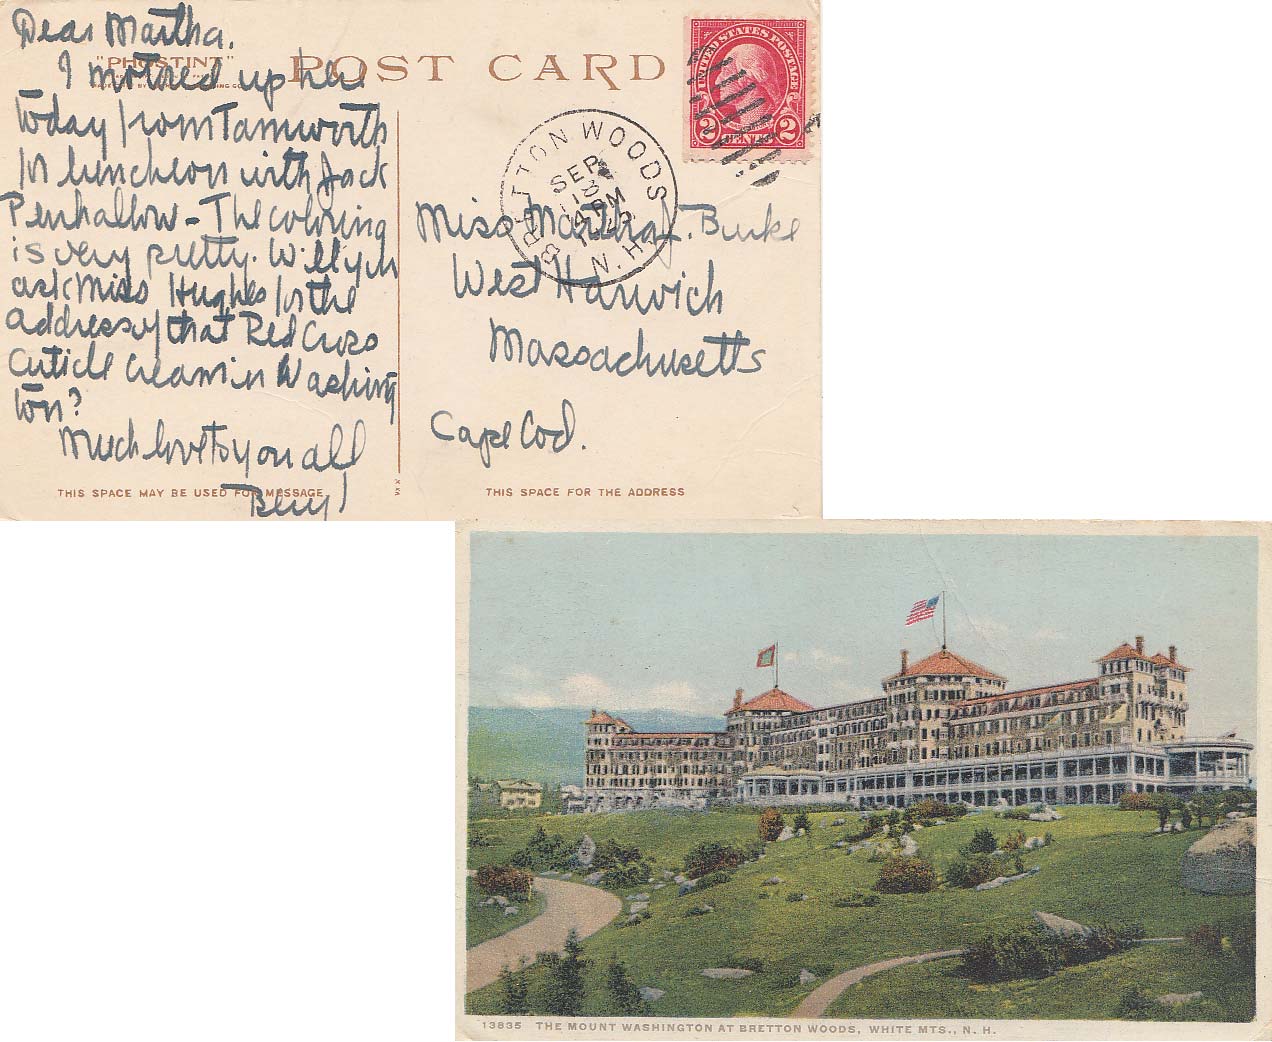 Dear Martha.
I motored up here
today from Tamworth
for luncheon with Jack
Penhallow - The coloring
is very pretty. Will you
ask Miss Hughes for the
address of that Red Cross
Cuticle Cream in Washing
ton?
Much love to you all
Beryl
"PHOSTINT"
POST CARD
THIS SPACE MAY BE USED FOR MESSAGE
UNITED STATES POSTAGE
2 CENTS 2
BRETTON WOODS N.H.
SEP
18
4 PM
Miss Martha J. Burke
West Harwich
Massachusetts
Cape Cod.
THIS SPACE FOR THE ADDRESS
13835 THE MOUNT WASHINGTON AT BRETTON WOODS, WHITE MTS., N. H.